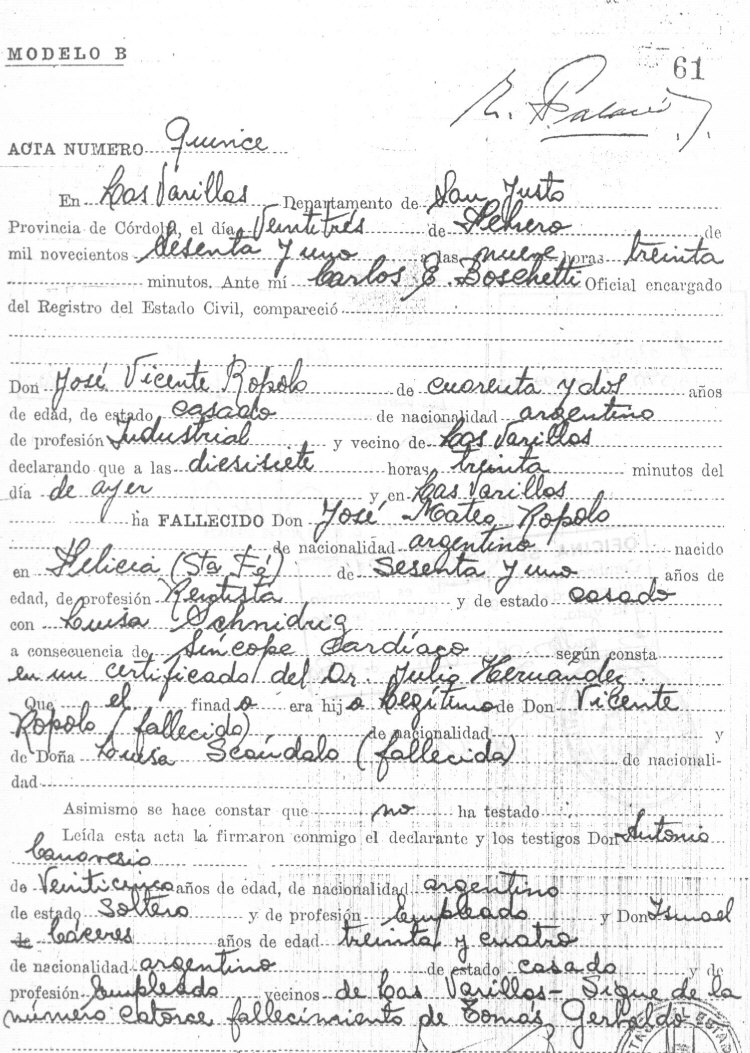 MODELO B
61
ACTA NUMERO Quince
En Las Varillas Departamento de San Justo
Provincia de Córdoba, el día Veintitrés de Febrero de
mil novecientos sesenta y uno a las nueve horas treinta
minutos. Ante mí Carlos E. Boschetti Oficial encargado
del Registro del Estado Civil, compareció
Don José Vicente Ropolo de cuarenta y dos años
de edad, de estado casado de nacionalidad argentino
de profesión Industrial y vecino de Las Varillas
declarando que a las diesisiete horas treinta minutos del
día de ayer y en Las Varillas
ha FALLECIDO Don José Mateo Ropolo
de nacionalidad argentino nacido
en Felicia (Sta Fé) de Sesenta y uno años de
edad, de profesión Rentista y de estado casado
con Luisa Schnidrig
a consecuencia de Síncope Cardíaco según consta
en un certificado del Dr. Julio Hernandez.
Que el finado era hijo Legítimo de Don Vicente
Ropolo (fallecido) de nacionalidad y
de Doña Luisa Scándalo (fallecida) de nacionali-
dad
Asimismo se hace constar que no ha testado
Leída esta acta la firmaron conmigo el declarante y los testigos Don Antonio
de Veinticinco años de edad, de nacionalidad argentino
de estado Soltero y de profesión Empleado y Don Ismael
Cáceres años de edad treinta y cuatro
de nacionalidad argentino de estado casado y de
profesión Empleado vecinos de Las Varillas - Sigue de la
número Catorce fallecimiento de Tomás Gerbaldo